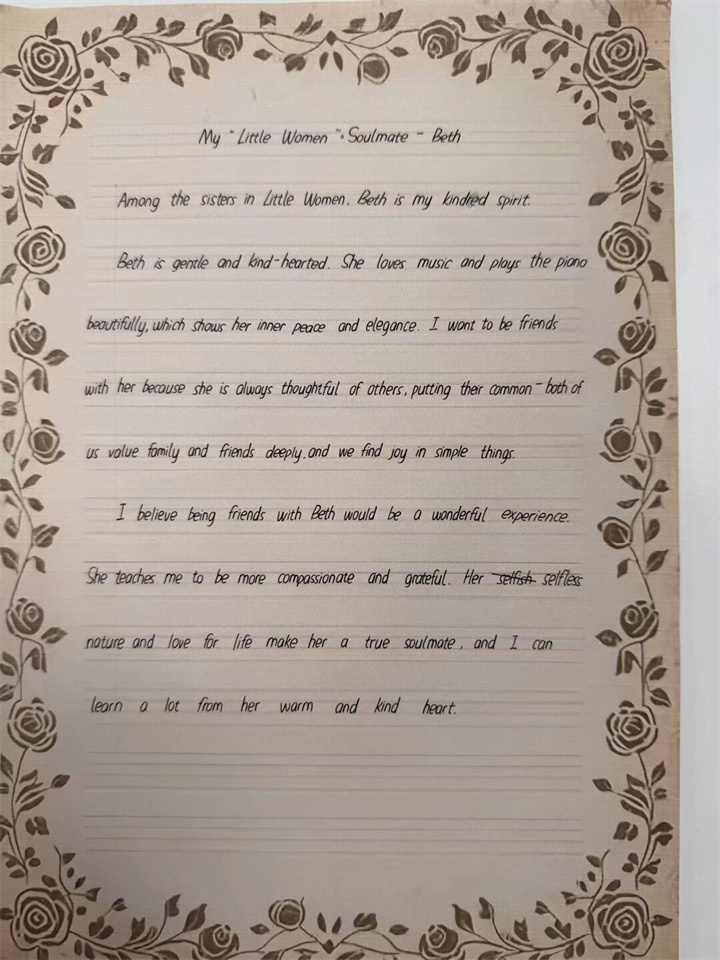 My "Little Women". Soulmate - Beth
Among the sisters in Little Women. Beth is my kindred spirit.
Beth is gentle and kind-hearted. She loves music and plays the piano
beautifully, which shows her inner peace and elegance. I want to be friends
with her because she is always thoughtful of others, putting their common - both of
us value family and friends deeply, and we find joy in simple things.
I believe being friends with Beth would be a wonderful experience.
She teaches me to be more compassionate and grateful. Her selfish selfless
nature and love for life make her a true soulmate, and I can
learn a lot from her warm and kind heart.